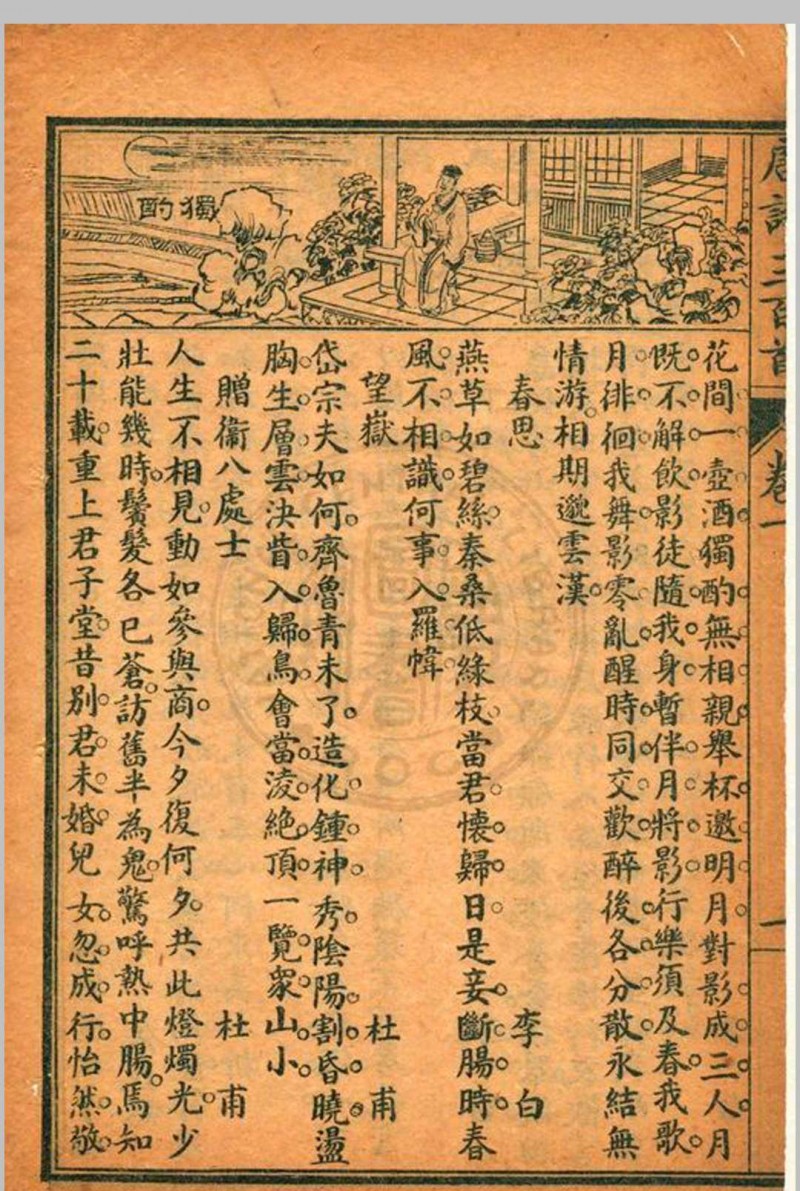 唐詩三百首
卷一
一
獨酌
花間一壺酒獨酌無相親舉杯邀明月對影成三人月
既不解飲影徒隨我身暫伴月將影行樂須及春我歌
月徘徊我舞影零亂醒時同交歡醉後各分散永結無
情游相期邈雲漢
春思 李白
燕草如碧絲秦桑低綠枝當君懷歸日是妾斷腸時春
風不相識何事入羅幃
望嶽 杜甫
岱宗夫如何齊魯青未了造化鍾神秀陰陽割昏曉盪
胸生層雲決眥入歸鳥會當淩絕頂一覽衆山小
贈衞八處士 杜甫
人生不相見動如參與商今夕復何夕共此燈燭光少
壯能幾時鬢髮各已蒼訪舊半為鬼驚呼熱中腸焉知
二十載重上君子堂昔別君未婚兒女忽成行怡然敬